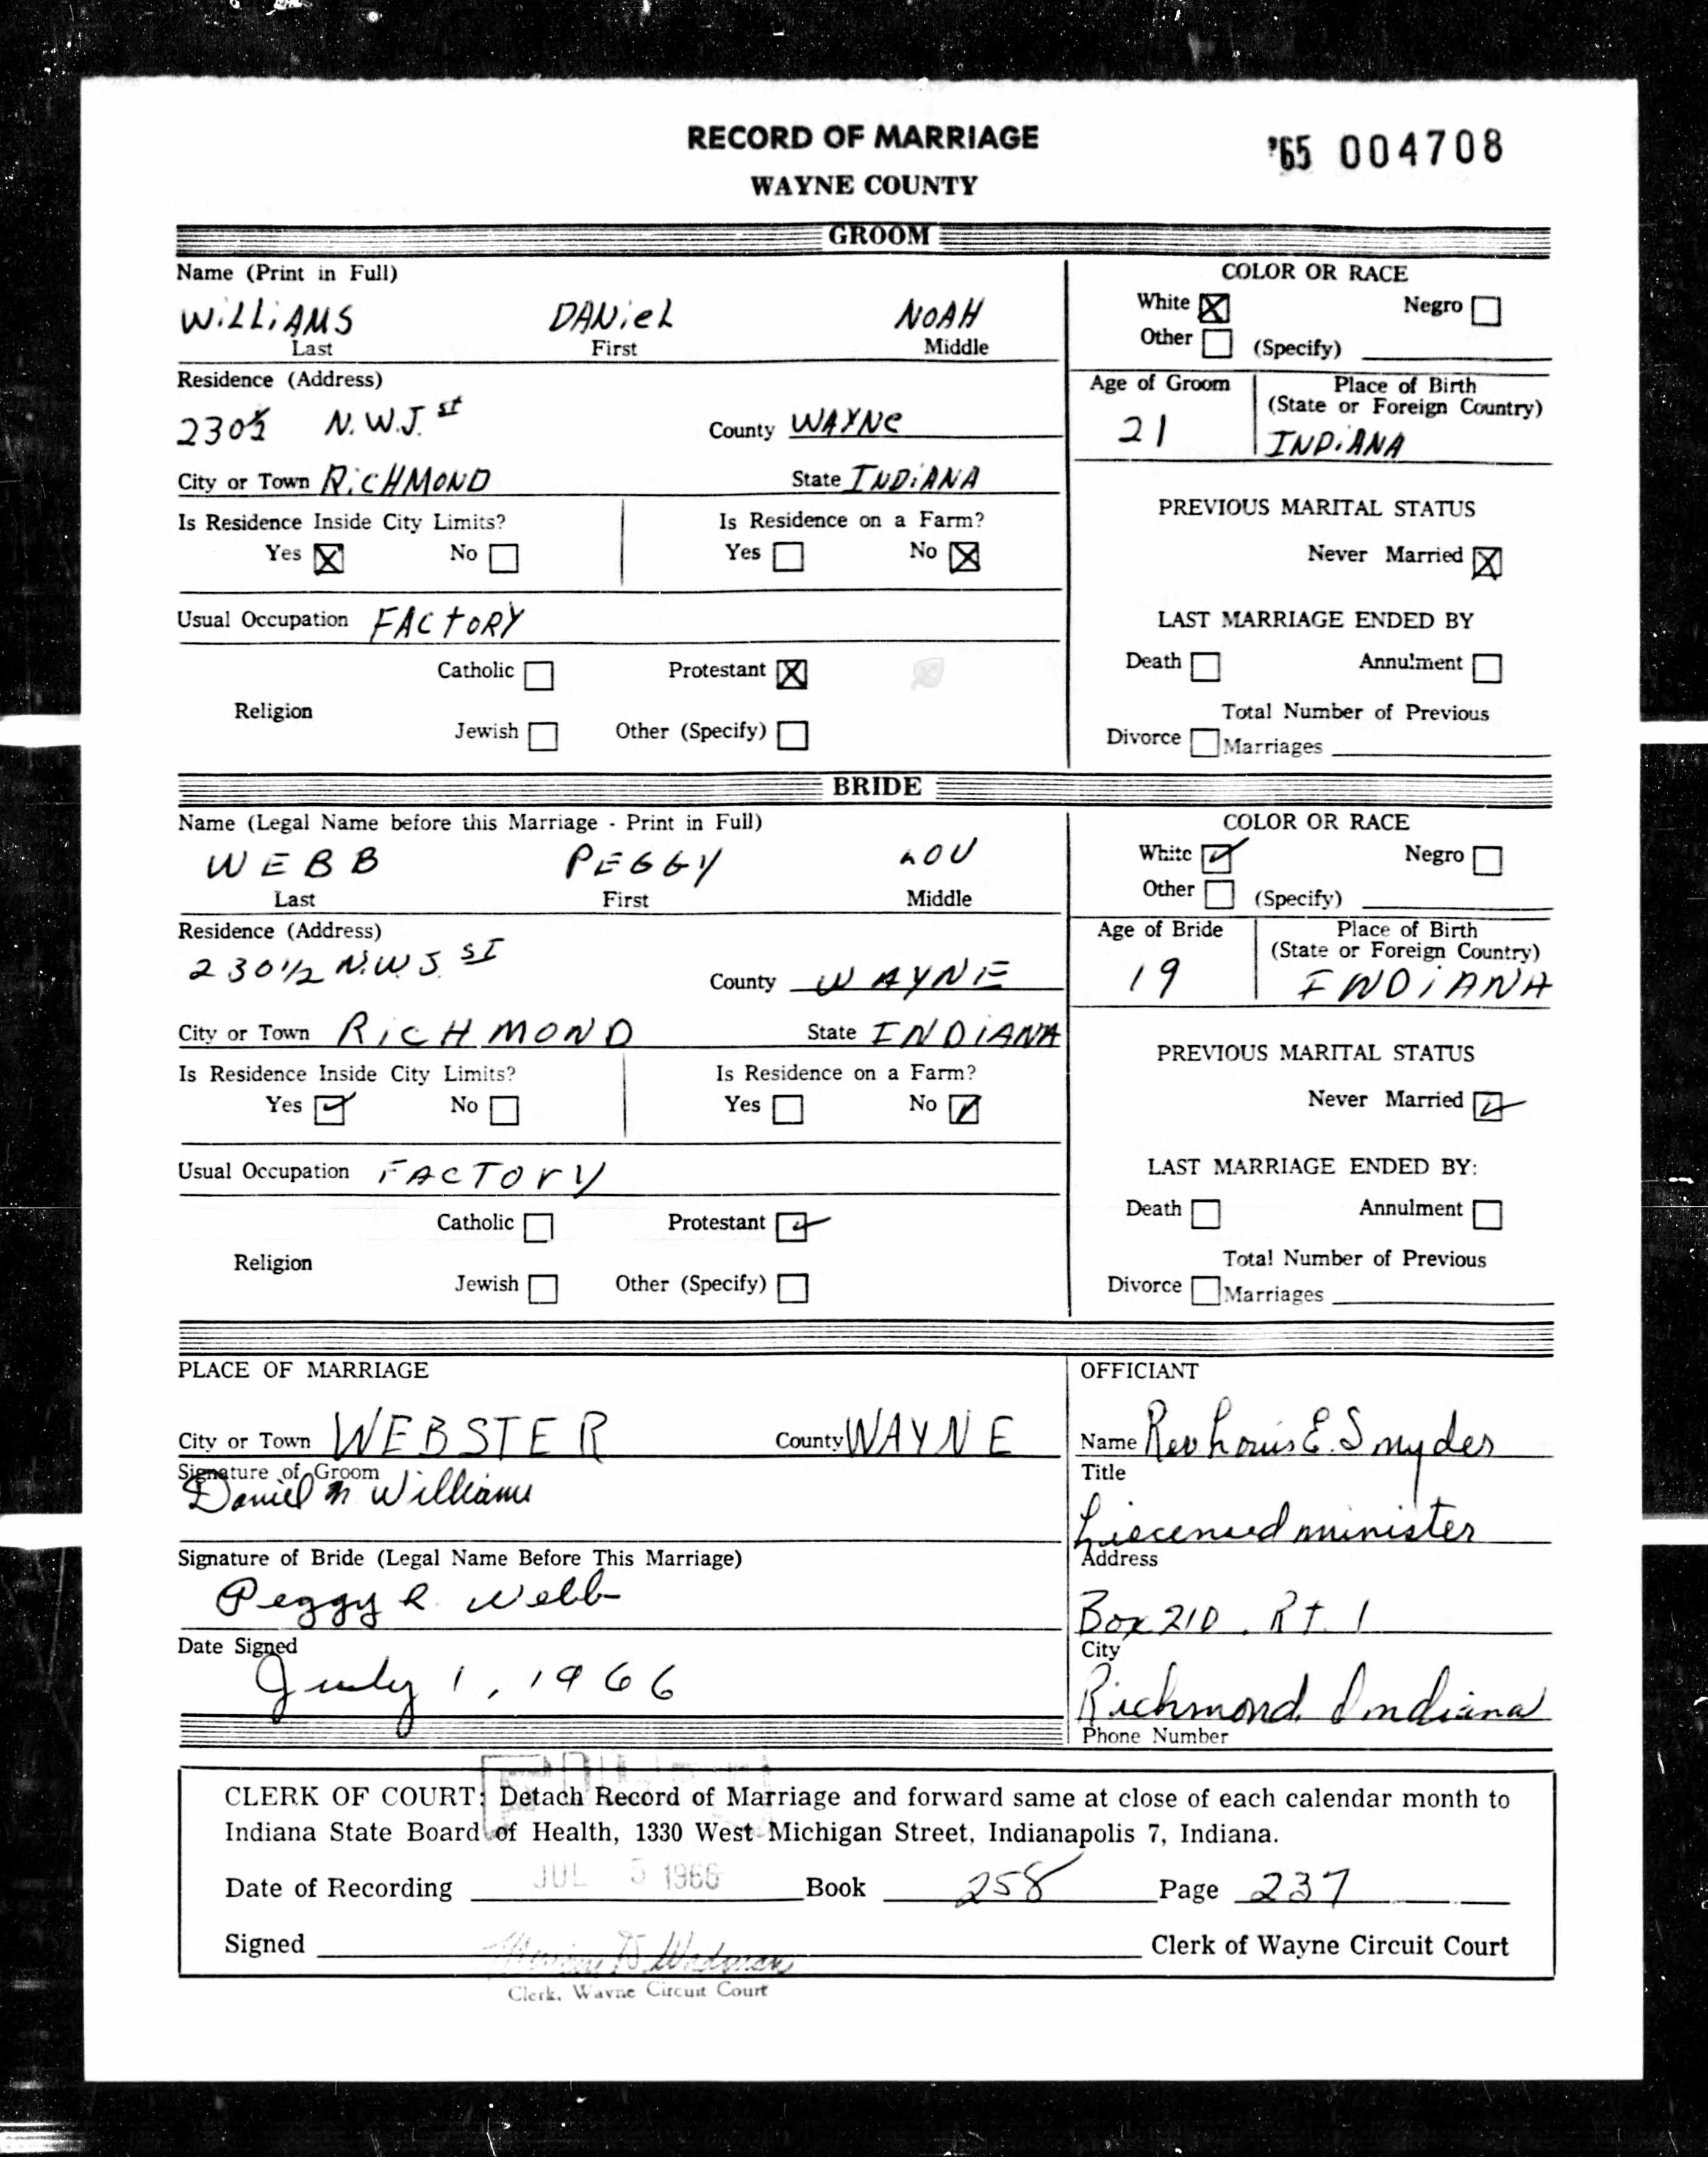 RECORD OF MARRIAGE
'65 004708
WAYNE COUNTY
GROOM
Name (Print in Full)
WiLLiAMS DANieL NOAH
Last First Middle
COLOR OR RACE
White Negro
Other (Specify)
Residence (Address)
230½ N.W.J. st County WAYNe
City or Town RiCHMOND State INDiANA
Age of Groom
21
Place of Birth
(State or Foreign Country)
INDiANA
Is Residence Inside City Limits? Is Residence on a Farm?
Yes No Yes No
PREVIOUS MARITAL STATUS
Never Married
Usual Occupation FACtORY
LAST MARRIAGE ENDED BY
Death Annulment
Catholic Protestant
Religion
Jewish Other (Specify)
Total Number of Previous
Divorce Marriages
BRIDE
Name (Legal Name before this Marriage - Print in Full)
WEBB PEGGY LOU
Last First Middle
COLOR OR RACE
White Negro
Other (Specify)
Residence (Address)
230 1/2 N.W J. ST County WAYNE
City or Town RiCHMOND State INDIANA
Age of Bride
19
Place of Birth
(State or Foreign Country)
INDiANA
Is Residence Inside City Limits? Is Residence on a Farm?
Yes No Yes No
PREVIOUS MARITAL STATUS
Never Married
Usual Occupation FACTOrY
LAST MARRIAGE ENDED BY:
Death Annulment
Catholic Protestant
Religion
Jewish Other (Specify)
Total Number of Previous
Divorce Marriages
PLACE OF MARRIAGE
City or Town WEBSTER County WAYNE
Signature of Groom
Daniel N Williams
Signature of Bride (Legal Name Before This Marriage)
Peggy L. Webb
Date Signed
July 1, 1966
OFFICIANT
Name Rev Louis E. Snyder
Title
Liecensed minister
Address
Box 210. Rt. 1
City
Richmond, Indiana
Phone Number
CLERK OF COURT: Detach Record of Marriage and forward same at close of each calendar month to
Indiana State Board of Health, 1330 West Michigan Street, Indianapolis 7, Indiana.
Date of Recording JUL 5 1966 Book 258 Page 237
Signed Clerk of Wayne Circuit Court
Clerk, Wayne Circuit Court